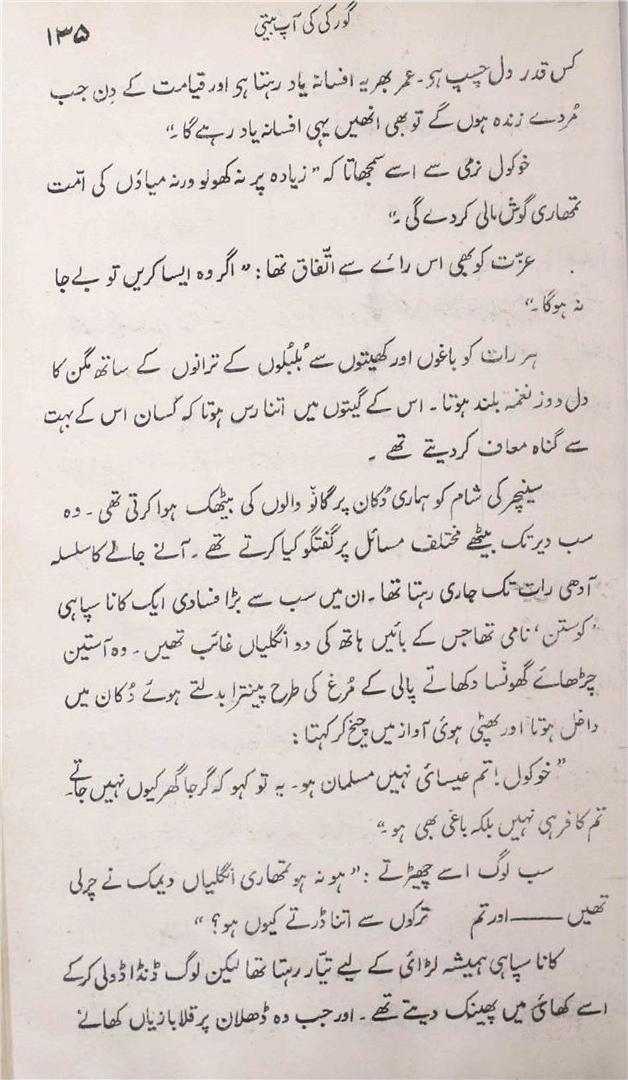 ۱۳۵
گورکی کی آپ بیتی
کس قدر دل چسپ ہی۔ عمر بھر یہ افسانہ یاد رہتا ہی اور قیامت کے دِن جب
مُردے زندہ ہوں گے تو بھی انھیں یہی افسانہ یاد رہے گا۔“
خوکول نرمی سے اسے سمجھاتا کہ ”زیادہ پر نہ کھولو ورنہ میاؤں کی امّت
تمھاری گوش مالی کردے گی۔“
عزّت کو بھی اس رائے سے اتّفاق تھا: ”اگر وہ ایسا کریں تو بے جا
نہ ہوگا۔“
ہر رات کو باغوں اور کھیتوں سے بُلبُلوں کے ترانوں کے ساتھ مگن کا
دل دوز نغمہ بلند ہوتا۔ اس کے گیتوں میں اتنا رس ہوتا کہ کسان اس کے بہت
سے گناہ معاف کردیتے تھے۔
سینچر کی شام کو ہماری دُکان پر گانوٗ والوں کی بیٹھک ہوا کرتی تھی۔ وہ
سب دیر تک بیٹھے مختلف مسائل پر گفتگو کیا کرتے تھے۔ آنے جانے کا سلسلہ
آدھی رات تک جاری رہتا تھا۔ ان میں سب سے بڑا فسادی ایک کانا سپاہی
’کوستن‘ نامی تھا جس کے بائیں ہاتھ کی دو انگلیاں غائب تھیں۔ وہ آستین
چڑھائے گھونسا دکھاتے پالی کے مُرغ کی طرح پینترا بدلتے ہوئے دُکان میں
داخل ہوتا اور پھٹی ہوئی آواز میں چیخ کر کہتا:
”خوکول! تم عیسائی نہیں مسلمان ہو۔ یہ تو کہو کہ گرجا گھر کیوں نہیں جاتے۔
تم کافر ہی نہیں بلکہ باغی بھی ہو۔“
سب لوگ اسے چھیڑتے: ”ہو نہ ہو تمھاری انگلیاں دیمک نے چرلی
تھیں —— اور تم ترکوں سے اتنا ڈرتے کیوں ہو؟“
کانا سپاہی ہمیشہ لڑائی کے لیے تیّار رہتا تھا لیکن لوگ ڈنڈا ڈولی کرکے
اسے کھائی میں پھینک دیتے تھے۔ اور جب وہ ڈھلان پر قلابازیاں کھاتے